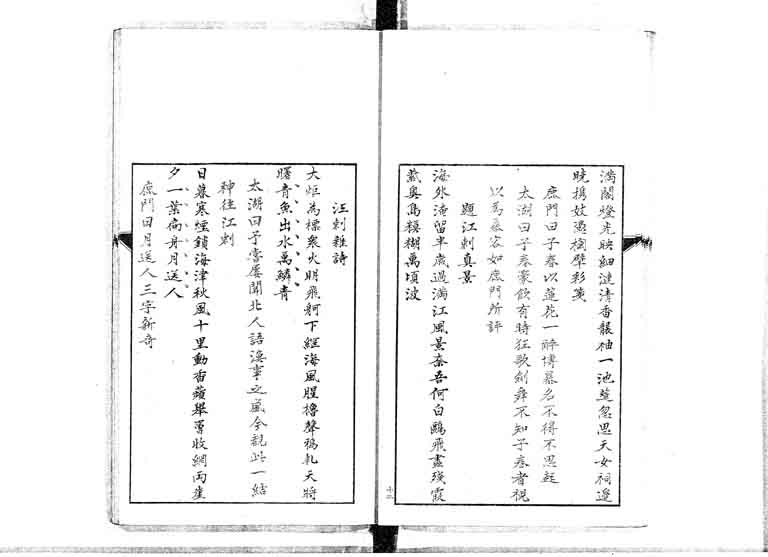 満閣燈光映細漣清香襲袖一池蓮忽思天女祠邊
曉携妓憑欄擘彩箋
鹿門曰子泰以蓮花一醉博暴名不得不思起
太湖曰子泰豪飲有時狂歌劍舞不知子泰者視
以為暴客如鹿門所評
題江刺真景
海外淹留半歳過満江風景奈吾何白鷗飛盡残霞
戴奥鳥糢糊萬頃波
十二
江刺雑詩
大炬為標衆火明飛舸下經海風腥櫓聲鴉軋天将
曙青魚出水萬鱗青
太湖曰予嘗屢聞北人語漁事之盛今観此一結
神往江刺
日暮寒煙鎖海津秋風十里動香蘋舉罾收網両崖
夕一葉扁舟月送人
鹿門曰月送人三字新奇